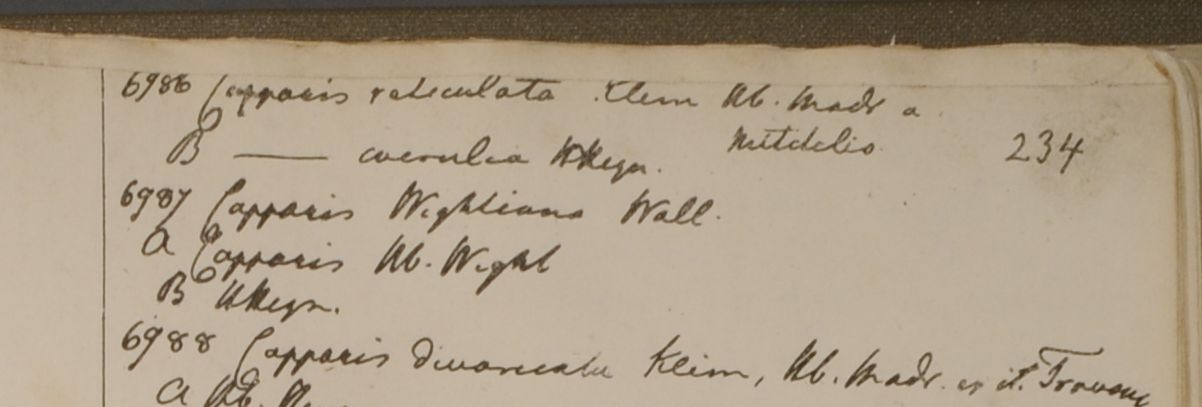 6986 Capparis reticulata Klein Hb. Madr a
B —— coerulea HHeyn. Mitchelio 234
6987 Capparis Wightiana Wall.
a Capparis Hb. Wight
B HHeyn.
6988 Capparis divaricata Klein, Hb. Madr.
a Hb.